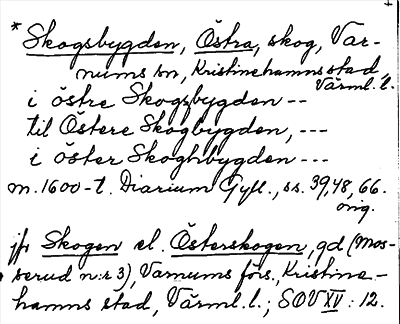 * Skogsbygden, Östra, skog, Var-
nums sn, Kristinehamns stad,
Värml. l.
i östre Skogsbygden --
til Östere Skogbygden, ---
i öster Skoghbygden ---
m. 1600-t. Diarium Gyll., ss. 39, 48, 66.
orig.
jfr Skogen el. Österskogen, gd (Mos-
serud n:r 3), Varnums förs., Kristine-
hamns stad, Värml. l.; SOV XV: 12.